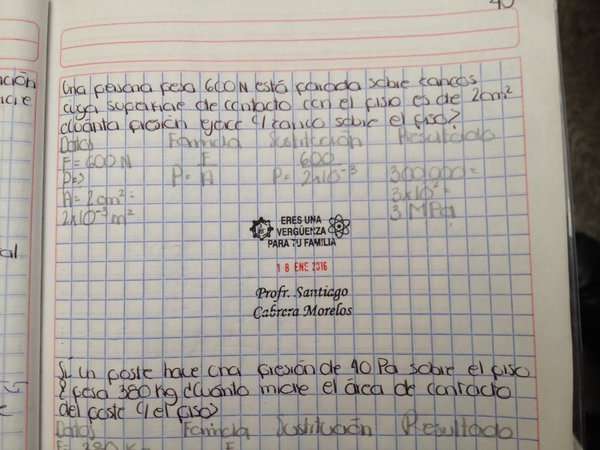 40
ación
Una persona pesa 600 N está parada sobre zancos
cuya superficie de contacto con el piso es de 20m²
¿Cuánta presión ejerce c/zanco sobre el piso?
Datos Formula Sustitución Resultado
F = 600 N F 600 300,000 =
P = ? P = A P = 2x10⁻³ 3x10⁵ =
A = 20m² = 3 MPa
2x10⁻³ m²
ERES UNA
VERGÜENZA
PARA TU FAMILIA
18 ENE 2016
Profr. Santiago
Cabrera Morelos
al
Si un poste hace una presión de 40 Pa sobre el piso
pesa 380 kg ¿Cuánto mide el área de contacto
del poste y el piso?
Datos Formula Sustitución Resultado
F = 380 Kg F